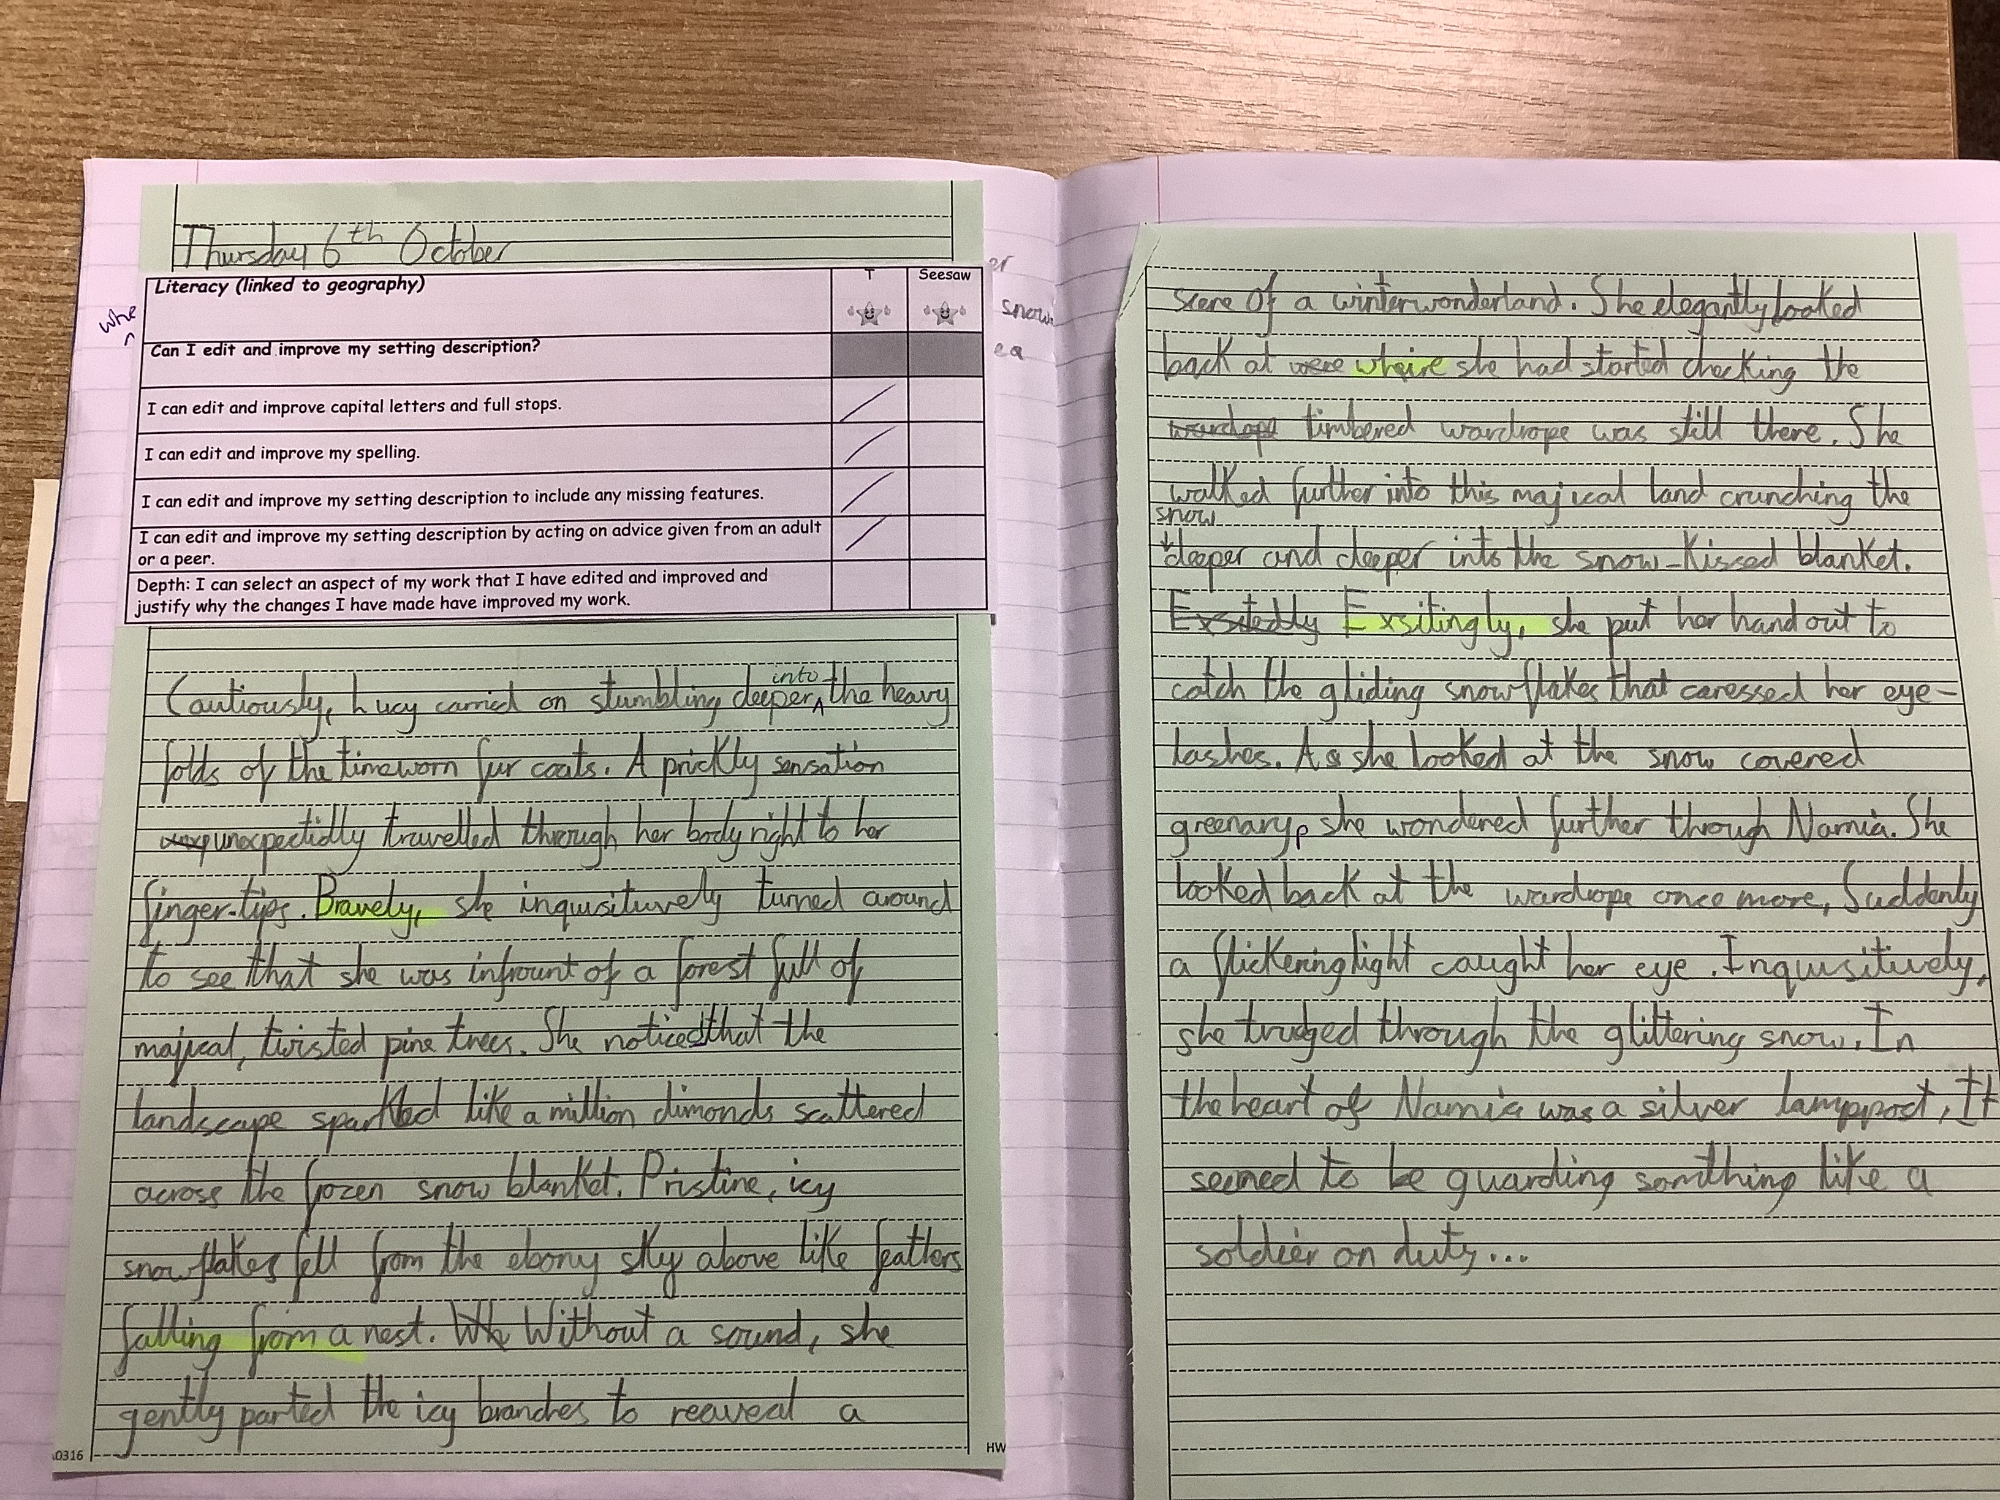 Thursday 6th October
Literacy (linked to geography)
T
Seesaw
Can I edit and improve my setting description?
I can edit and improve capital letters and full stops.
I can edit and improve my spelling.
I can edit and improve my setting description to include any missing features.
I can edit and improve my setting description by acting on advice given from an adult
or a peer.
Depth: I can select an aspect of my work that I have edited and improved and
justify why the changes I have made have improved my work.
er
snow
ea
into
Cautiously, Lucy carried on stumbling deeper the heavy
folds of the timeworn fur coats. A prickly sensation
unexpectidly travelled through her body right to her
finger-tips. Bravely, she inquisituvely turned around
to see that she was infrount of a forest full of
majical, twisted pine trees. She noticed that the
landscape sparkled like a million dimonds scattered
across the frozen snow blanket. Pristine, icy
snowflakes fell from the ebony sky above like feathers
falling from a nest. Whe Without a sound, she
gently parted the icy branches to reaveal a
0316
HW
scene of a winterwonderland. She elegantly looked
back at were wheire she had started checking the
wardope timbered wardrope was still there. She
walked further into this majical land crunching the
snow
deeper and deeper into the snow-kissed blanket.
Exsitedly Exsitingly, she put her hand out to
catch the gliding snowflakes that caressed her eye-
lashes. As she looked at the snow covered
greenary, she wondered further through Narnia. She
looked back at the wardrope once more, Suddenly
a flickering light caught her eye. Inquisitively,
she trudged through the glittering snow. In
the heart of Narnia was a silver lamppost, It
seemed to be guarding somthing like a
soldier on duty...